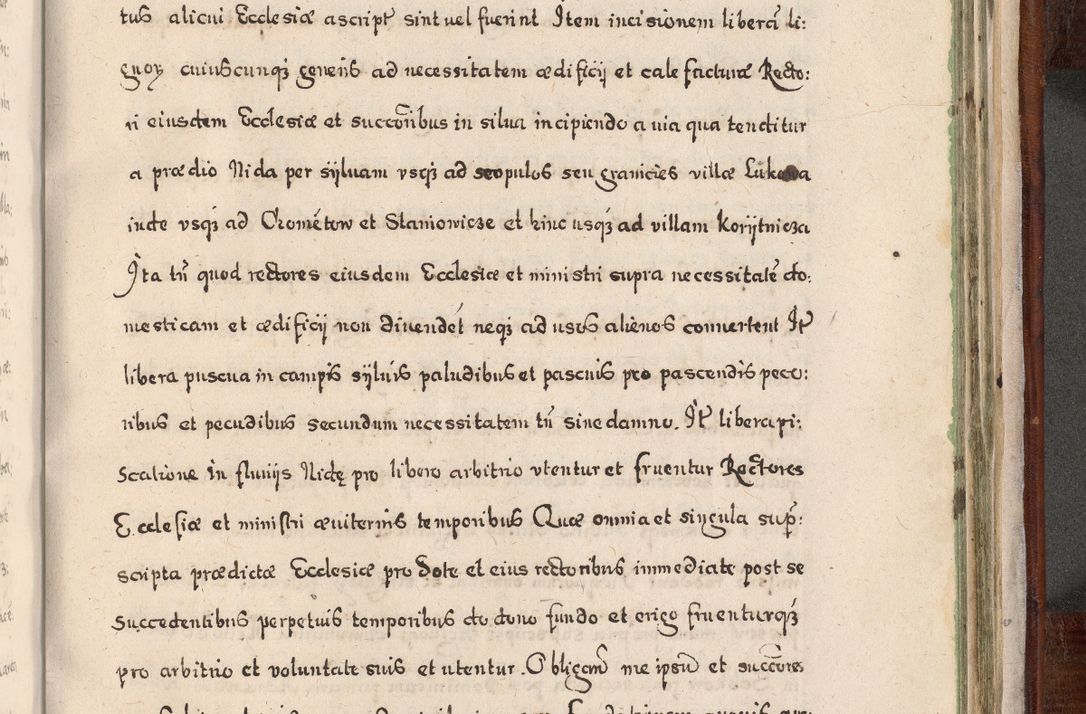 tus alicui Ecclesiæ ascript̃ sint uel fuerint Item incisionem liberã li:
gnoꝝ cuiuscunqȝ generis ad necessitatem ædificij et calefacturæ Recto:
ri eiusdem Ecclesiæ et succõribus in silua incipiendo a uia qua tenditur
a prædio Nida per syluam vsqȝ ad scopulos seu granicies villæ Lukowa
inde vsqȝ ad Chomętow et Staniowicze et hinc usqȝ ad villam Korÿtnicza
Ita tñ quod rectores eiusdem Ecclesiæ et ministri supra necessitatẽ do:
mesticam et ædificij non diuendẽt neqȝ ad usus alienos conuertent It̃
libera puscua in campis sÿluis paludibus et pascuis pro pascendis peco:
ribus et pecudibus secundum necessitatem tñ sine damno. It̃ libera pi:
scatione in fluuijs Nidę pro libero arbitrio vtentur et fruentur Rectores
Ecclesiæ et ministri æuiternis temporibus Quæ omnia et singula sup̃:
scripta prædictæ Ecclesiæ pro dote et eius rectoribus immediate post se
succedentibus perpetuis temporibus do dono fundo et erigo fruenturqȝ
pro arbitrio et voluntate suis et utentur. Obligans me ipsũ et succõres